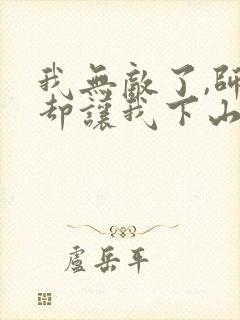 我無敵了,師
却讓我下山
盧岳平